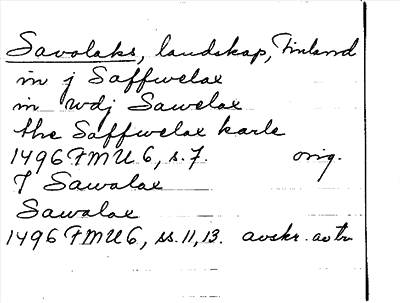 Savolaks, landskap, Finland
in j Saffwelax
in wdj Sawelax
the Saffwelax karle
1496 FMU 6, s. 7. orig.
J Sawalax
Sawolax
1496 FMU 6, ss. 11, 13. avskr. av tr.